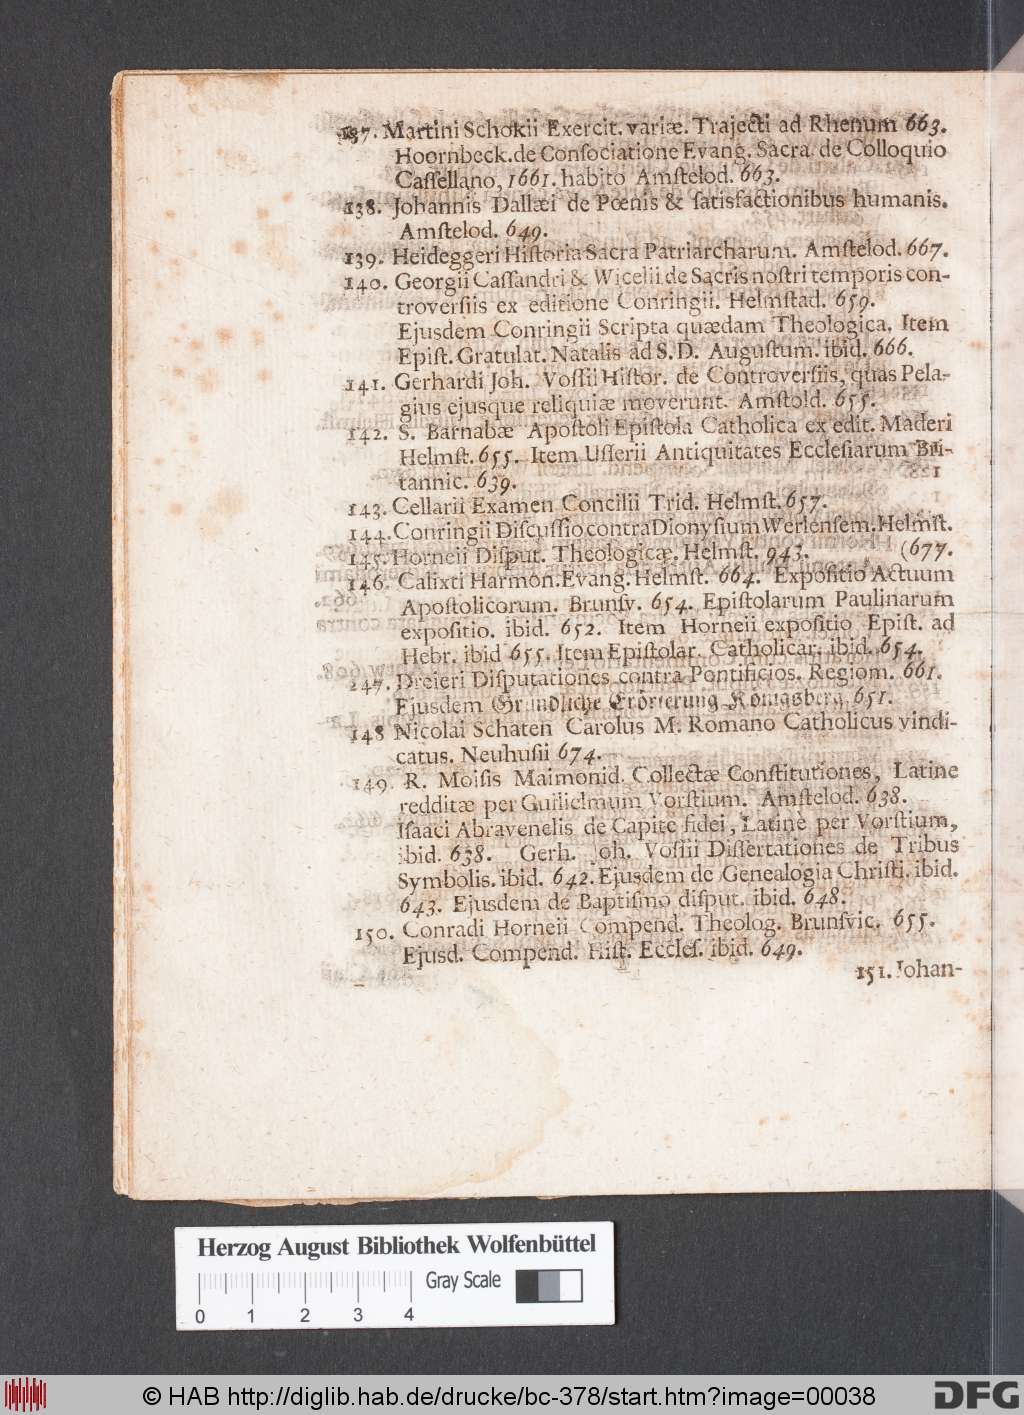 137. Martini Schokii Exercit. variæ. Trajecti ad Rhenum 663.
Hoornbeck. de Consociatione Evang. Sacra. de Colloquio
Cassellano, 1661. habito Amstelod. 663.
138. Johannis Dallæi de Pœnis & satisfactionibus humanis.
Amstelod. 649.
139. Heideggeri Historia Sacra Patriarcharum. Amstelod. 667.
140. Georgii Cassandri & Wicelii de Sacris nostri temporis con-
troversiis ex editione Conringii. Helmstad. 659.
Ejusdem Conringii Scripta quædam Theologica. Item
Epist. Gratulat. Natalis ad S. D. Augustum. ibid. 666.
141. Gerhardi Joh. Vossii Histor. de Controversiis, quas Pela-
gius ejusque reliquiæ moverunt. Amstold. 655.
142. S. Barnabæ Apostoli Epistola Catholica ex edit. Maderi
Helmst. 655. Item Usserii Antiquitates Ecclesiarum Bri-
tannic. 639.
143. Cellarii Examen Concilii Trid. Helmst. 657.
144. Conringii Discussio contra Dionysium Werlensem. Helmst.
145. Horneii Disput. Theologicæ. Helmst. 943. (677.
146. Calixti Harmon. Evang. Helmst. 664. Expositio Actuum
Apostolicorum. Brunsv. 654. Epistolarum Paulinarum
expositio. ibid. 652. Item Horneii expositio Epist. ad
Hebr. ibid 655. Item Epistolar. Catholicar. ibid. 654.
247. Dreieri Disputationes contra Pontificios. Regiom. 661.
Ejusdem Gründliche Erörterung Königsberg. 651.
148 Nicolai Schaten Carolus M. Romano Catholicus vindi-
catus. Neuhusii 674.
149. R. Moisis Maimonid. Collectæ Constitutiones, Latine
redditæ per Guilielmum Vorstium. Amstelod. 638.
Isaaci Abravenelis de Capite fidei, Latinè per Vorstium,
ibid. 638. Gerh. Joh. Vossii Dissertationes de Tribus
Symbolis. ibid. 642. Ejusdem de Genealogia Christi. ibid.
643. Ejusdem de Baptismo disput. ibid. 648.
150. Conradi Horneii Compend. Theolog. Brunsvic. 655.
Ejusd. Compend. Hist. Eccles. ibid. 649.
151. Johan-
Herzog August Bibliothek Wolfenbüttel
Gray Scale
0 1 2 3 4
© HAB http://diglib.hab.de/drucke/bc-378/start.htm?image=00038
DFG